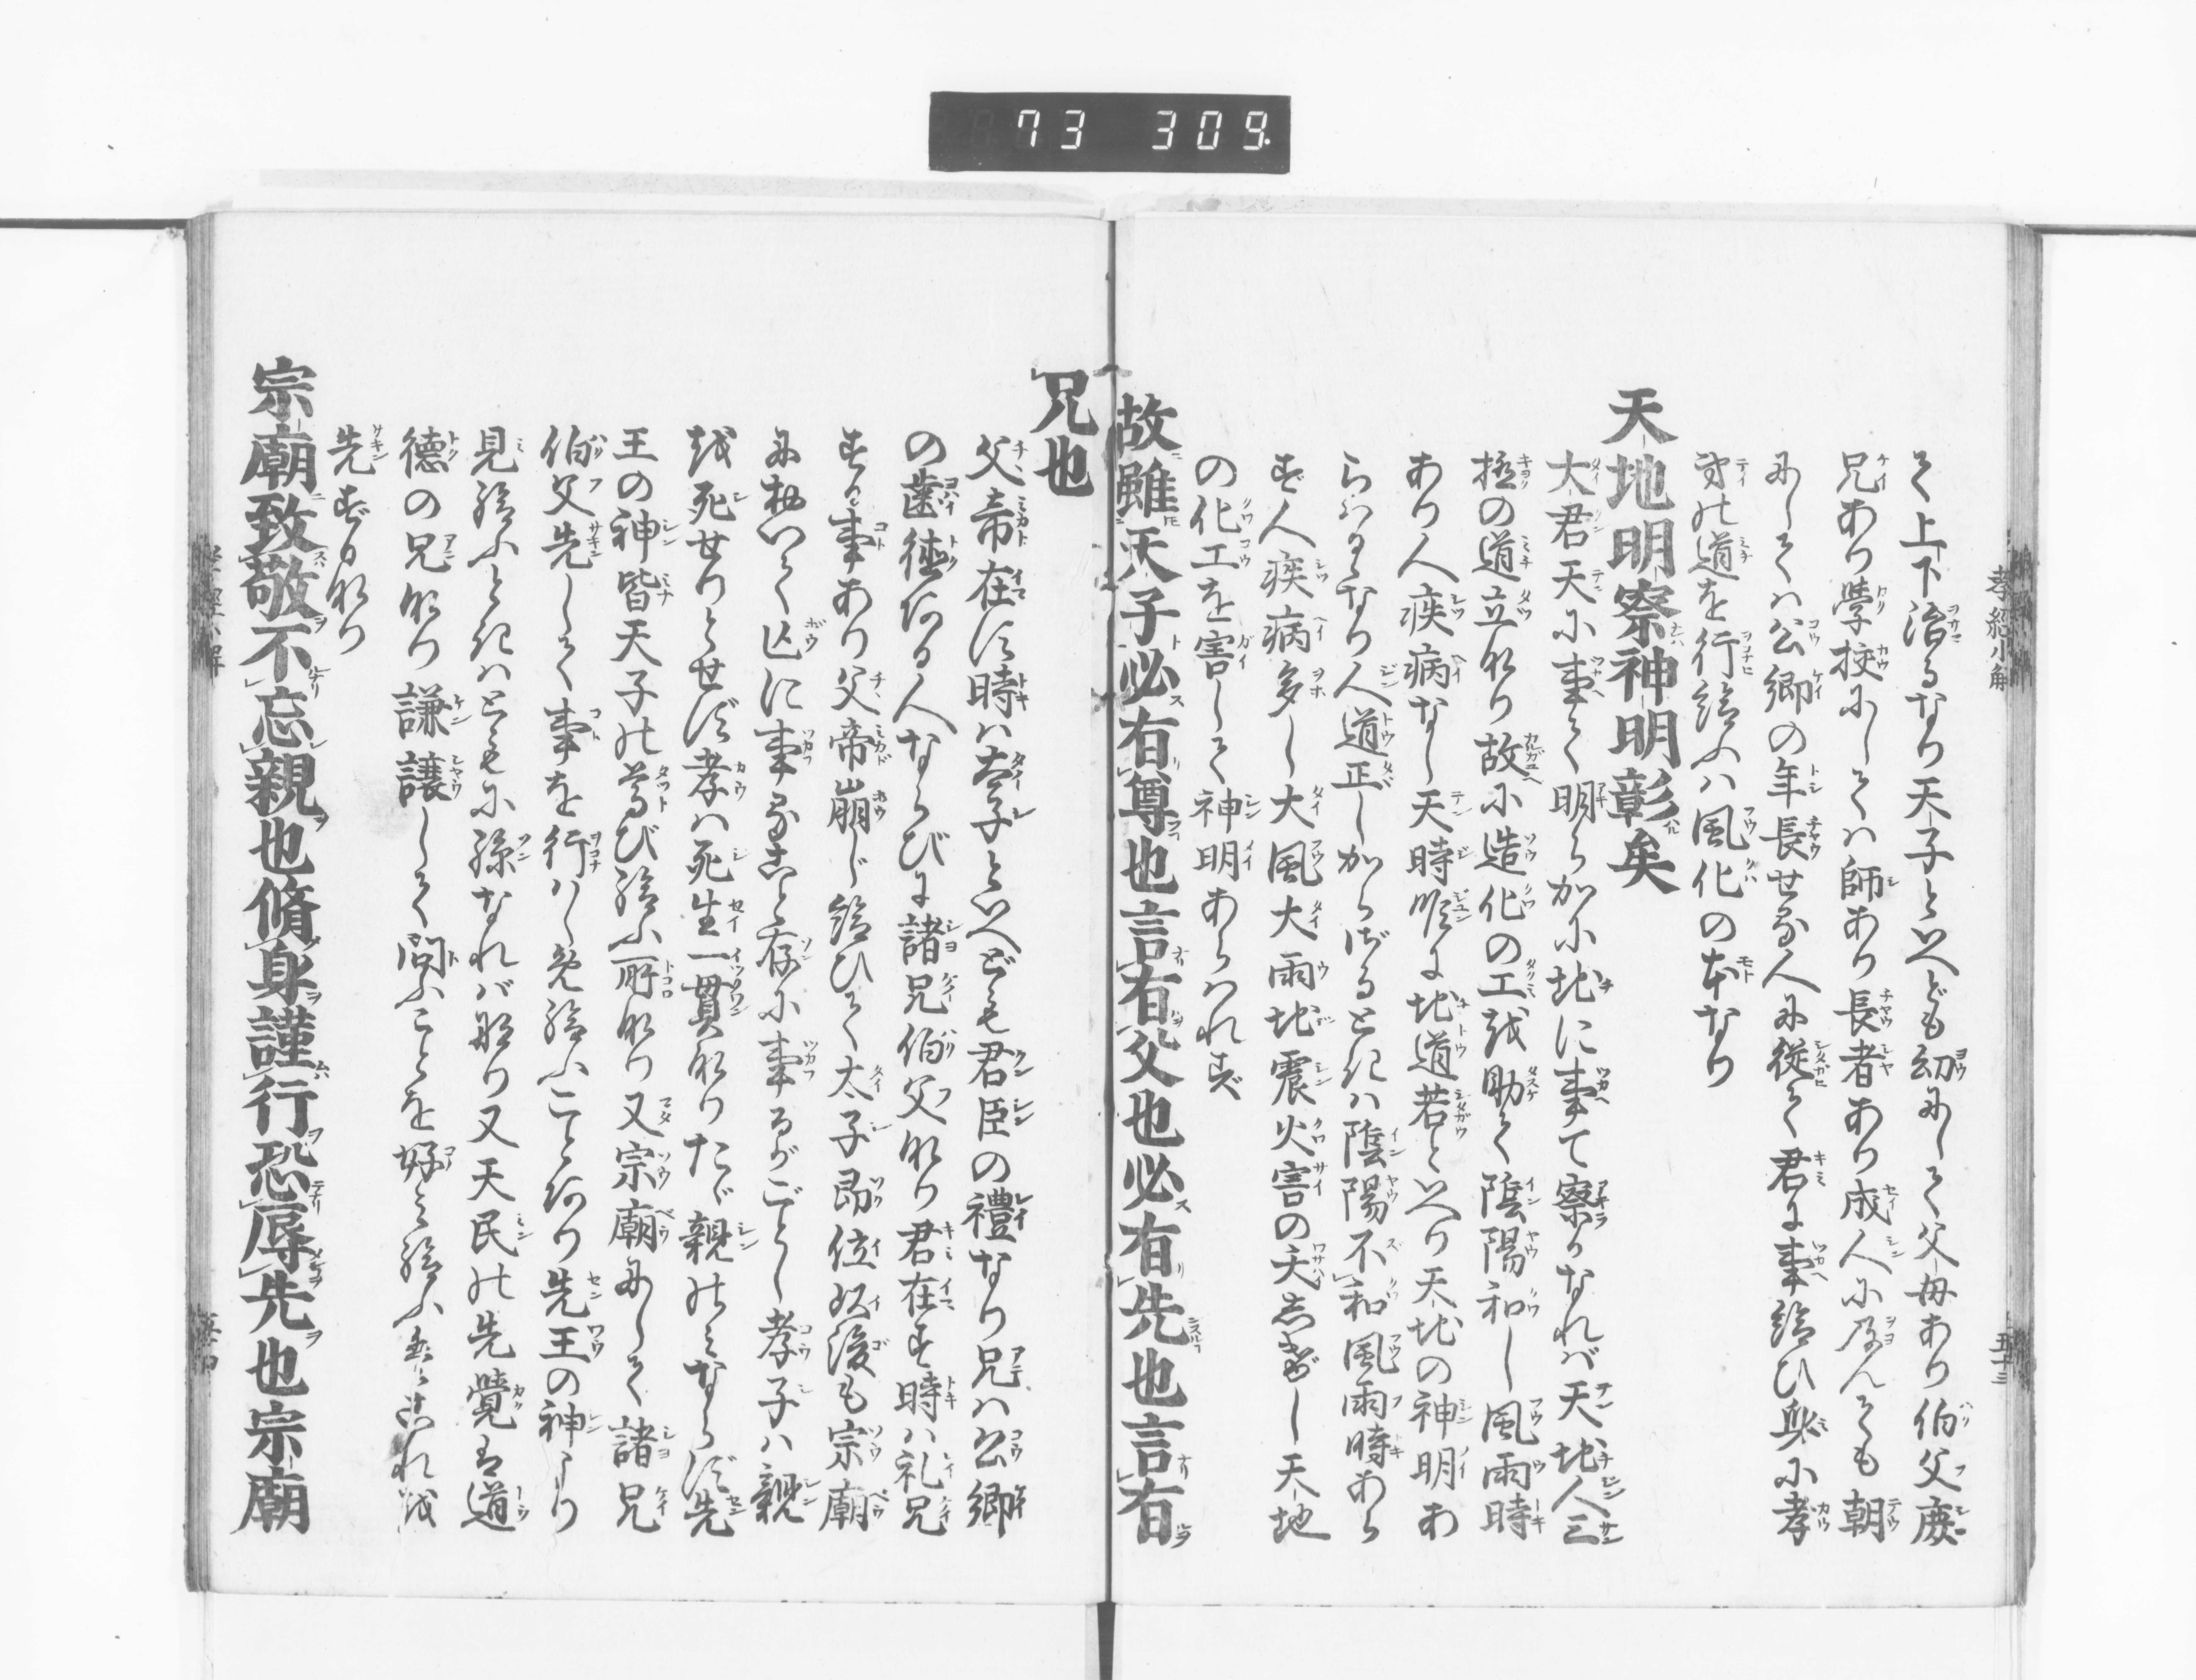 73 309
孝經小解
五十三
て上下治るなり天子といへども幼にしては父母あり伯父庶
兄あり學校にしては師あり長者あり成人に及んでも朝
にしては公卿の年長せる人に從て君に事給ひ兄に孝
弟の道を行給ふハ風化の本なり
天地明察神明彰矣
大君天に事て明らかに地に事て察かなれバ天地人三
極の道立なり故に造化の工を助て陰陽和し風雨時
あり人疾病なし天時順に地道若といへり天地の神明あ
らハるゝなり人道正しからざるときハ陰陽不和風雨時あら
ず人疾病多し大風大雨地震火害の夭あまねし天地
の化工を害して神明あらハれず
故雖天子必有尊也言有父也必有先也言有
兄也
父帝在す時ハ太子といへども君臣の禮なり兄ハ公卿
の歯徳ある人ならびに諸兄伯父なり君在す時ハ礼兄
する事あり父帝崩じ給ひて太子即位以後も宗廟
において亡に事ること存に事るがごとし孝子ハ親
を死せりとせず孝ハ死生一貫なりたゞ親のみならず先
王の神皆天子の尊び給ふ所なり又宗廟にして諸兄
伯父先して事を行ハしめ給ふことあり先王の神より
見給ふときハともに孫なれバなり又天民の先覺は道
德の兄なり謙讓して問ふことを好み給ふ是これを
先ずるなり
宗廟致敬不忘親也脩身謹行恐辱先也宗廟